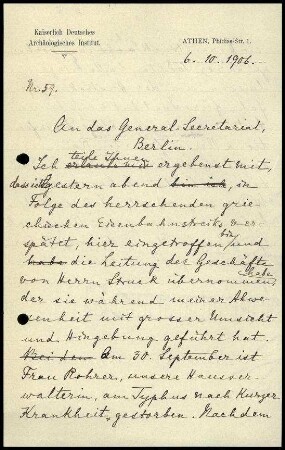 Kaiserlich Deutsches
Archäologisches Institut.
ATHEN, Phidias-Str. 1.
6. 10. 1906.
Nr. 59.
An das General-Secretariat,
Berlin.
teile Ihnen
Ich erlaube mir ergebenst mit,
dass ich gestern abend bin ich, in
Folge des herrschenden grie-
chischen Eisenbahnstreiks ver-
bin
spätet, hier eingetroffen und
habe
habe die Leitung der Geschäfte
von Herrn Struck übernommen,
der sie während meiner Abwe-
senheit mit grosser Umsicht
und Hingebung geführt hat.
Bei den Am 30. September ist
Frau Rohrer, unsere Hausver-
walterin, am Typhus nach kurzer
Krankheit, gestorben. Nachdem